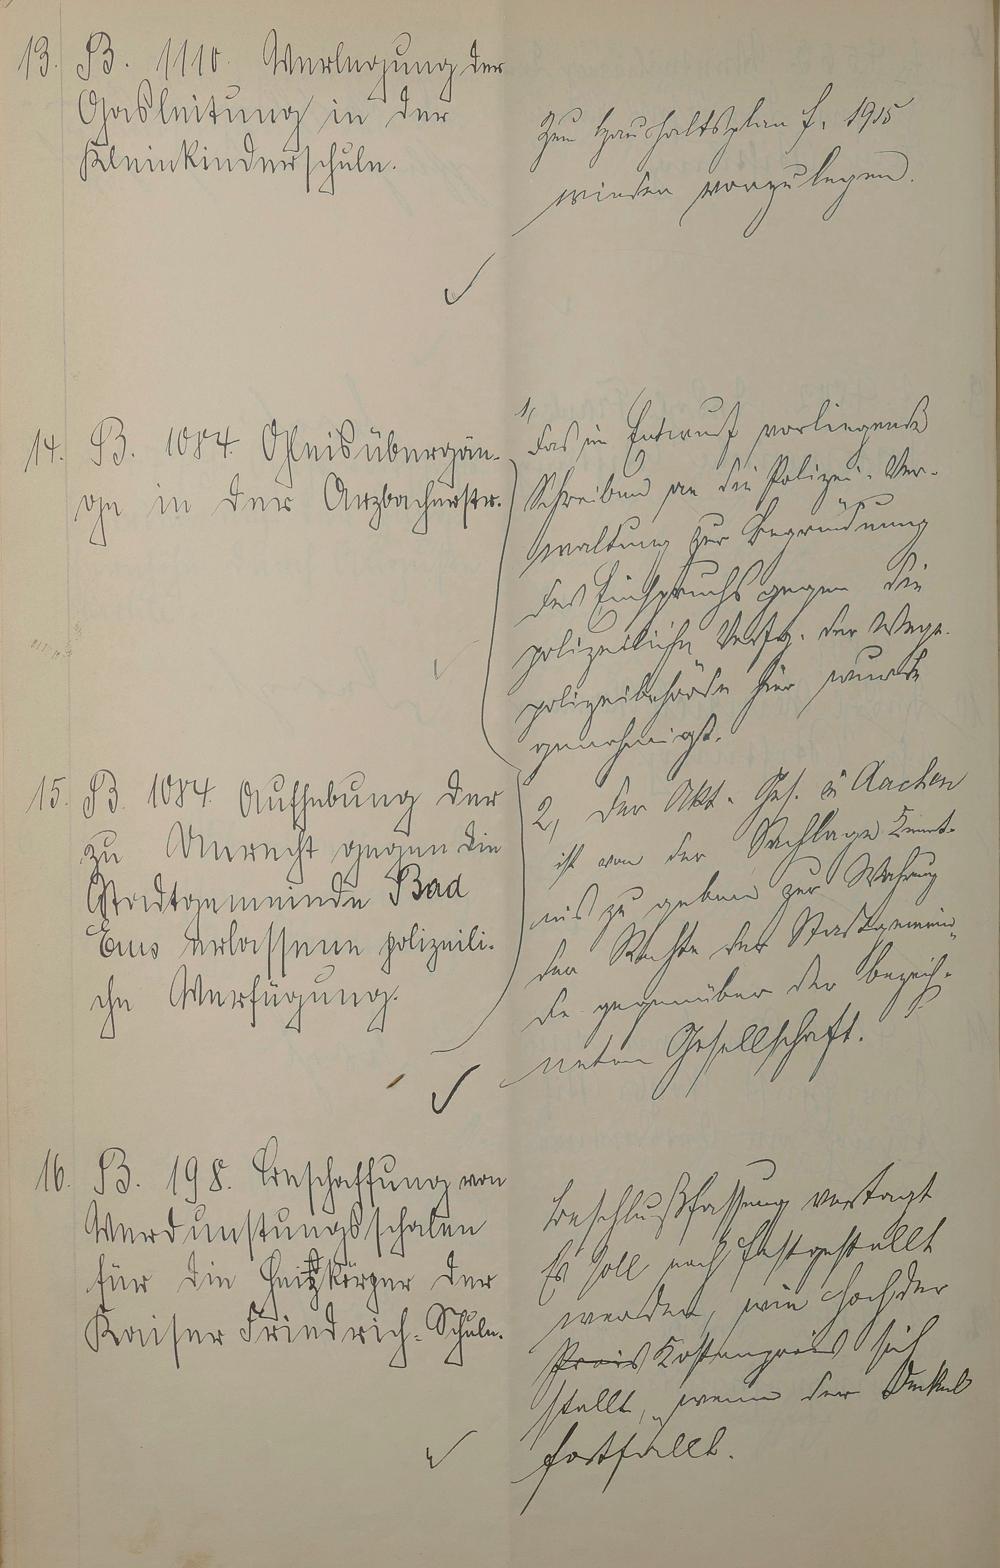 13. B. 1110. Verlegung der
Gasleitung in der
Kleinkinderschule.
Zum Haushaltsplan f. 1915
wieder vorzulegen.
14. B. 1084. Gleisübergän-
ge in der Arzbacherstr.
1, Das im Entwurf vorliegende
Schreiben an die Polizei-Ver-
waltung zur Begründung
des Einspruchs gegen die
polizeiliche Verfg. der Wege-
polizeibehörde hier wurde
genehmigt.
15. B. 1084. Aufhebung der
zu Unrecht gegen die
Stadtgemeinde Bad
Ems erlassene polizeili-
che Verfügung.
2, Der Akt. Ges. i Aachen
ist von der Sachlage Kennt-
nis zu geben zur Wahrung
der Rechte der Stadtgemein-
de gegenüber der bezeich-
neten Gesellschaft.
16. B. 198. Beschaffung von
Verdunstungsschalen
für die Heizkörper der
Kaiser Friedrich-Schule.
Beschlußfassung vertagt
Es soll noch festgestellt
werden, wie hoch der
Preis Kostenpreis sich
stellt, wenn der Deckel
fortfällt.